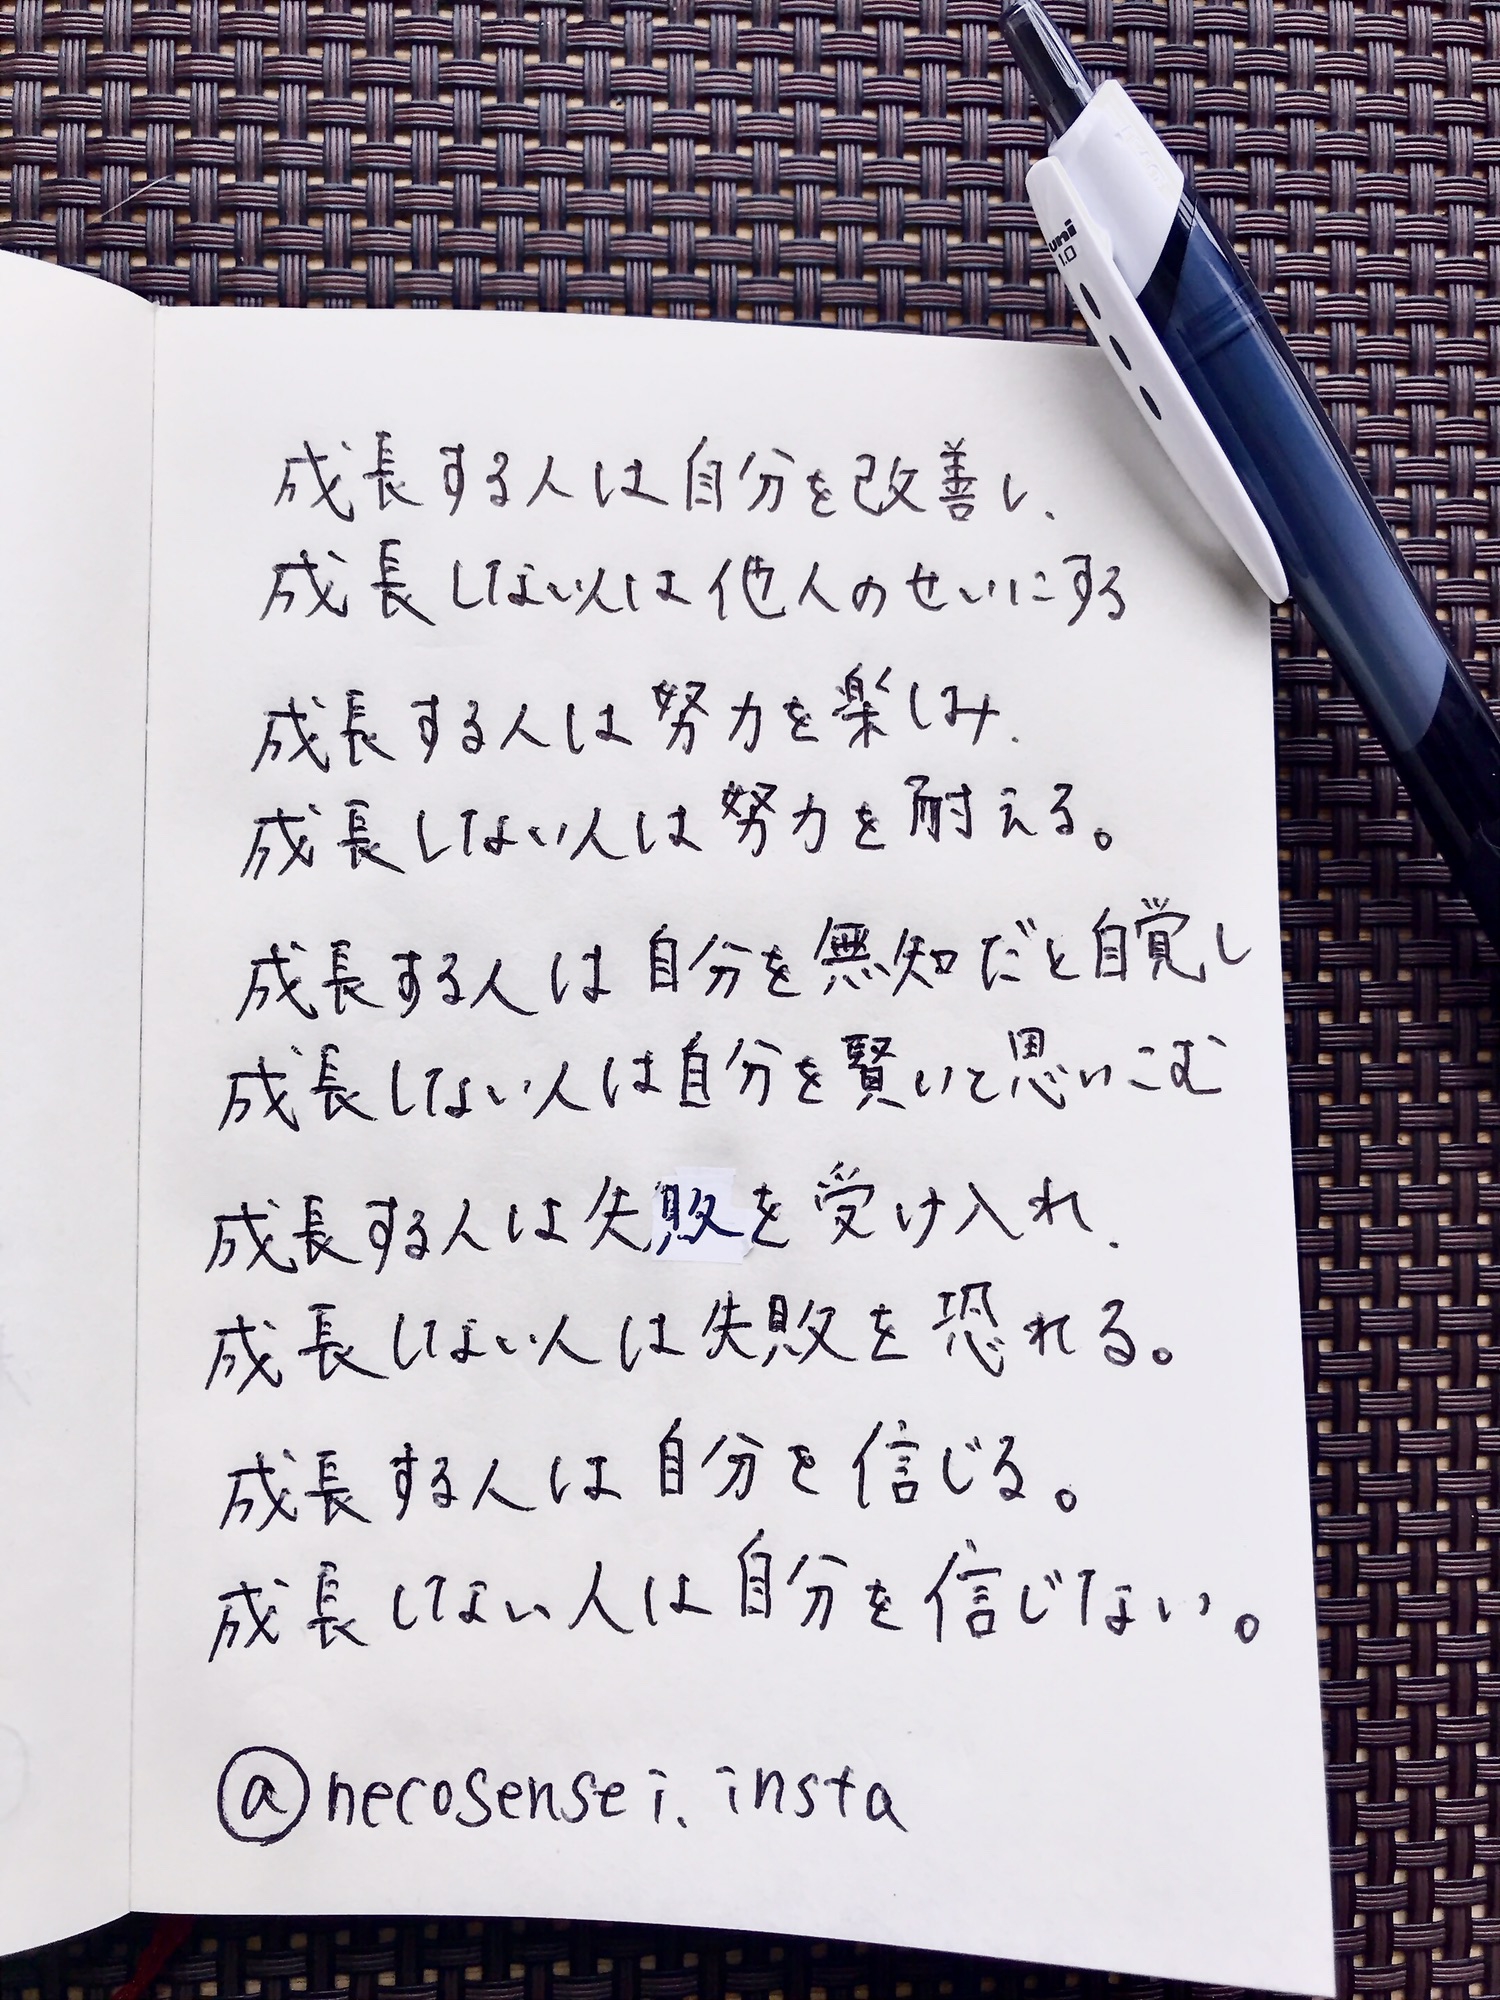 成長する人は自分を改善し、
成長しない人は他人のせいにする
成長する人は努力を楽しみ、
成長しない人は努力を耐える。
成長する人は自分を無知だと自覚し
成長しない人は自分を賢いと思いこむ
成長する人は失敗を受け入れ、
成長しない人は失敗を恐れる。
成長する人は自分を信じる。
成長しない人は自分を信じない。
@necosensei.insta
uni
1.0